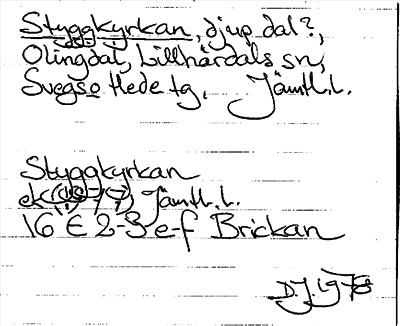 Styggkyrkan, djup dal?,
Olingdal, Lillhärdals sn,
Svegs o Hede tg. Jämtl.l.
Styggkyrkan
ek Jämtl.l.
16 E 2-3 e-f Brickan
D.J. 1978